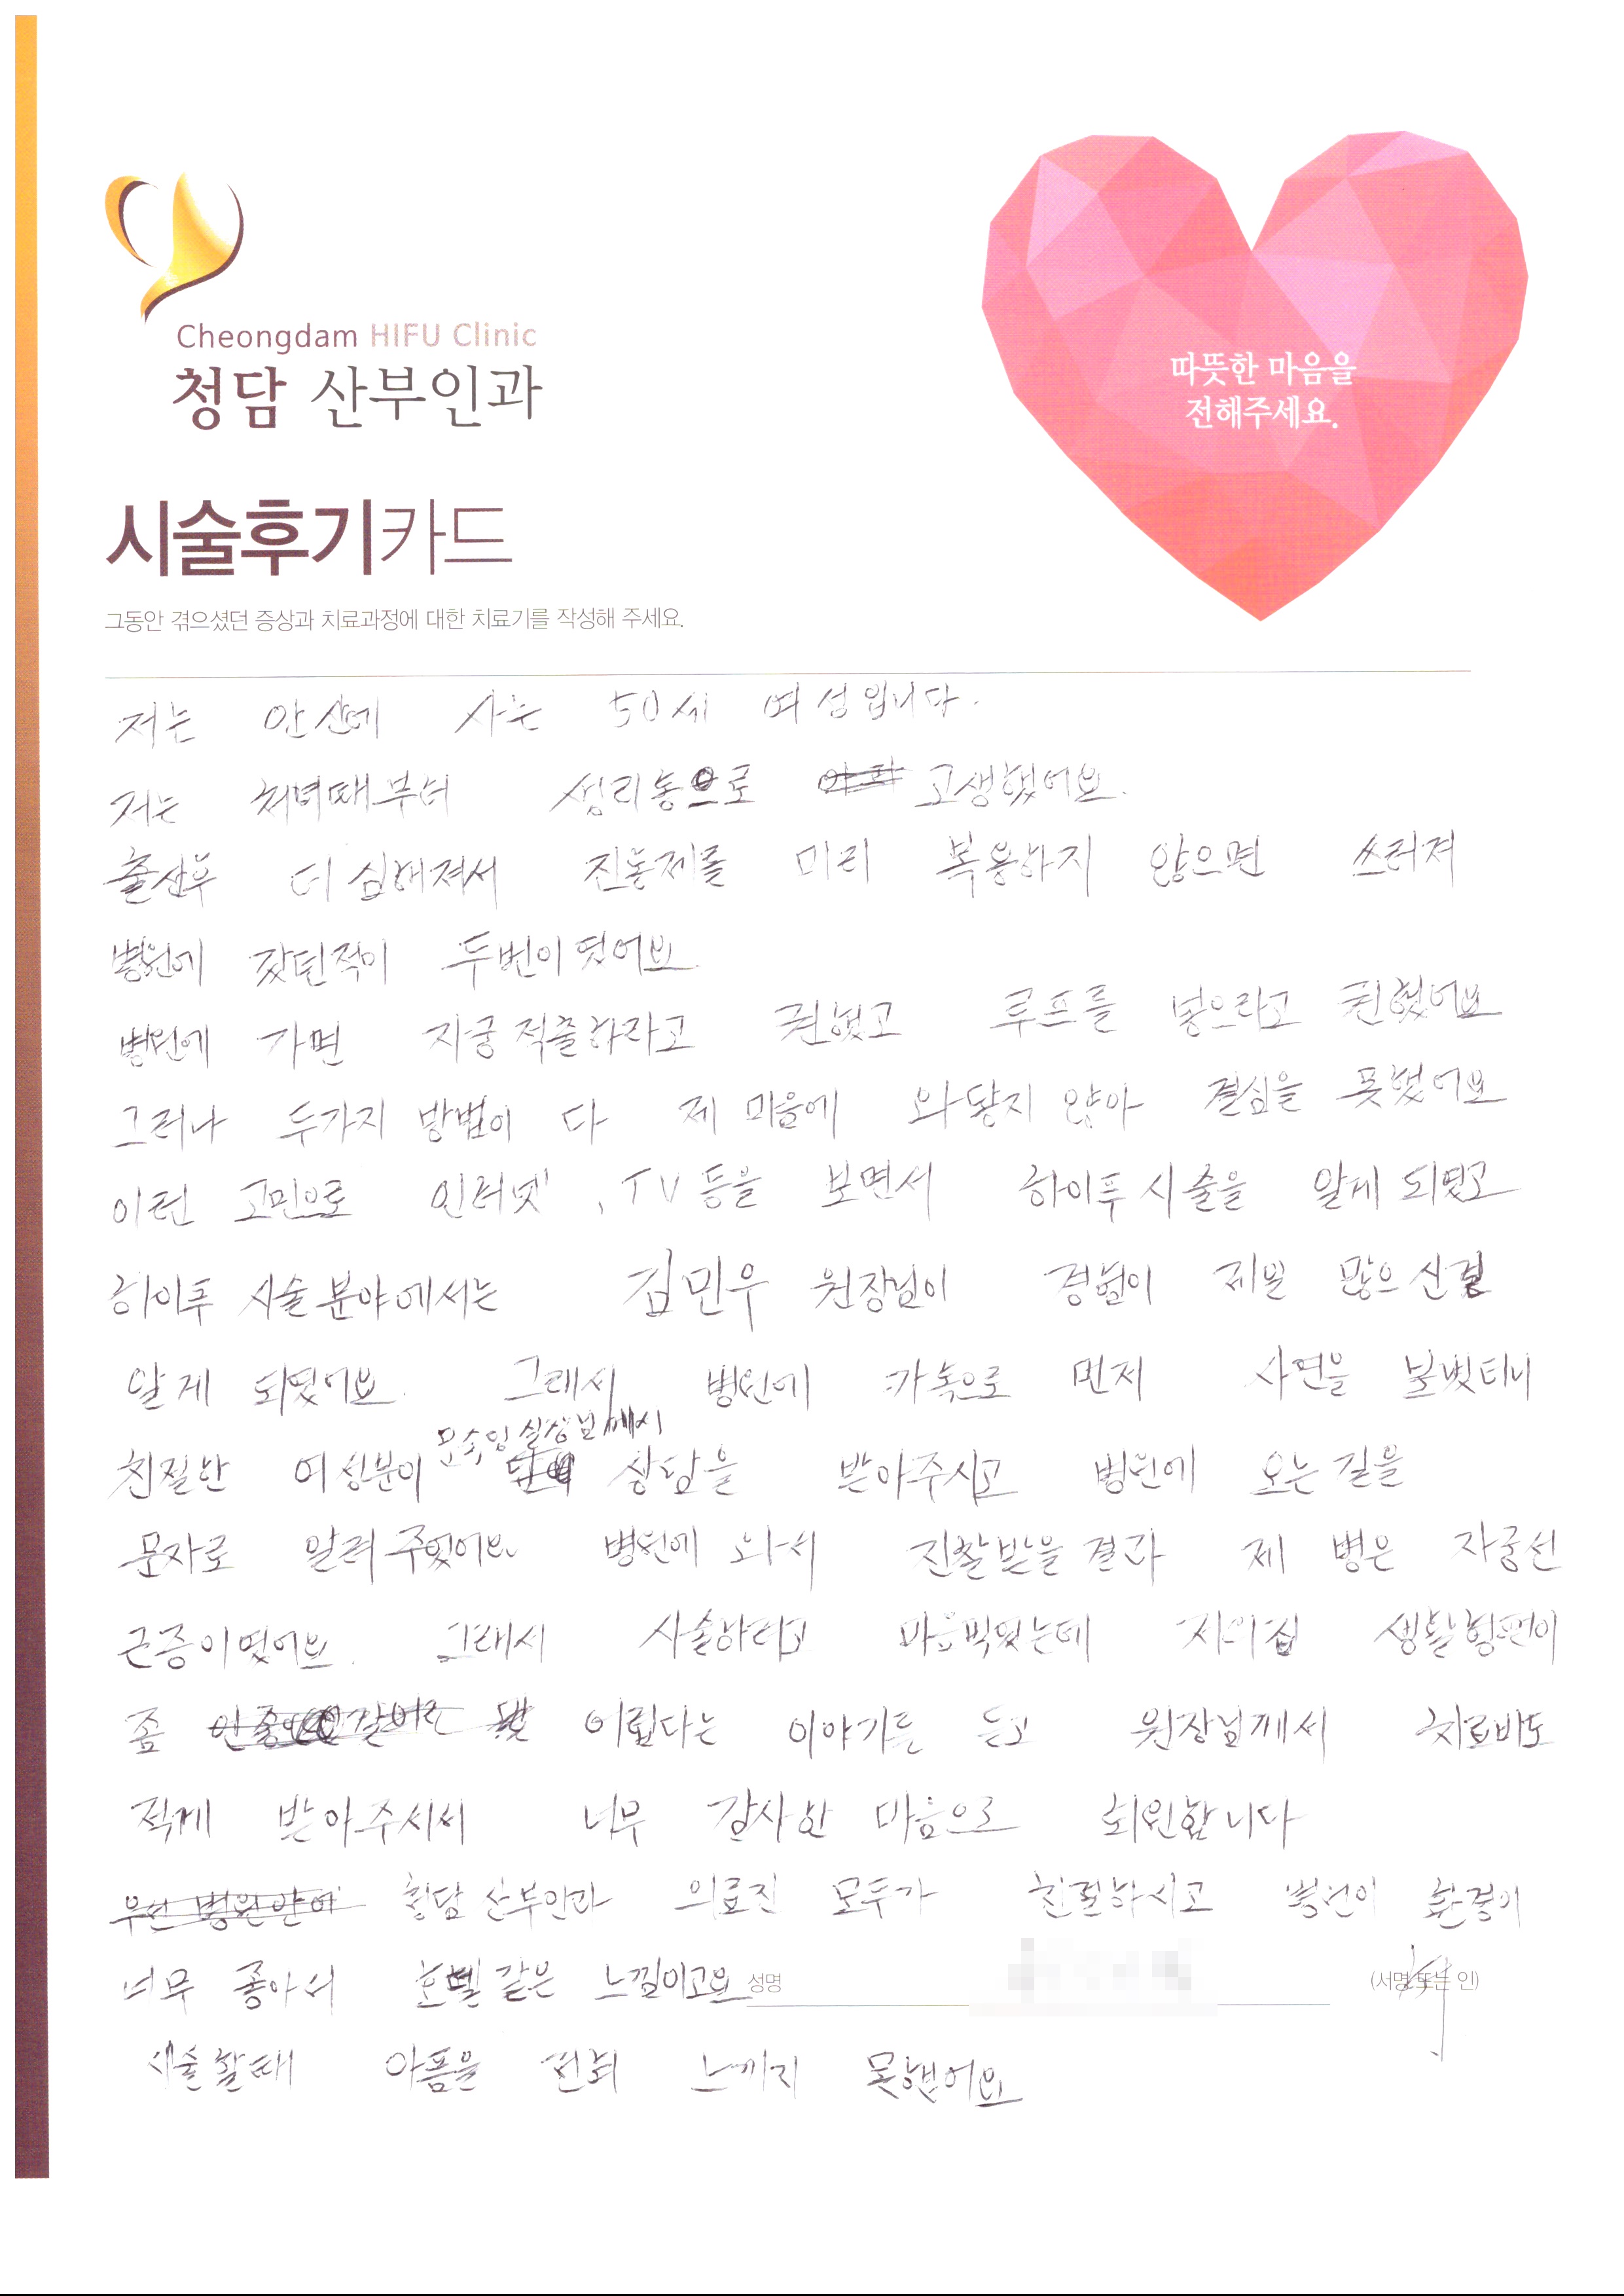 Cheongdam HIFU Clinic
청담 산부인과
따뜻한 마음을
전해주세요.
시술후기카드
그동안 겪으셨던 증상과 치료과정에 대한 치료기를 작성해 주세요.
저는 안산에 사는 50세 여성입니다.
저는 처녀때부터 생리통으로 고생했어요.
출산후 더 심해져서 진통제를 미리 복용하지 않으면 쓰러져
병원에 갔던적이 두번이였어요.
병원에 가면 자궁적출하라고 권했고 루프를 넣으라고 권했어요
그러나 두가지 방법이 다 제 마음에 와닿지 않아 결심을 못했어요
이런 고민으로 인터넷, TV등을 보면서 하이푸시술을 알게 되였고
하이푸 시술분야에서는 김민우 원장님이 경험이 제일 많으신걸
알게 되였어요. 그래서 병원에 카톡으로 먼저 사연을 보냈더니
친절한 여성분이 실장님께서 상담을 받아주시고 병원에 오는길을
문자로 알려주었어요. 병원에 와서 진찰받을결과 제 병은 자궁선
근증이였어요. 그래서 시술하려고 마음먹었는데 저의집 생활형편이
좀 어렵다는 이야기를 듣고 원장님께서 치료비도
적게 받아주시서 너무 감사한 마음으로 퇴원합니다
청담산부인과 의료진 모두가 친절하시고 병원이 환경이
너무 좋아서 호텔같은 느낌이고요
성명
(서명 또는 인)
시술할때 아픔을 전혀 느끼지 못했어요